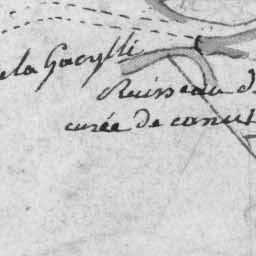 de la Gacylli
Ruisseau d
curée de canut